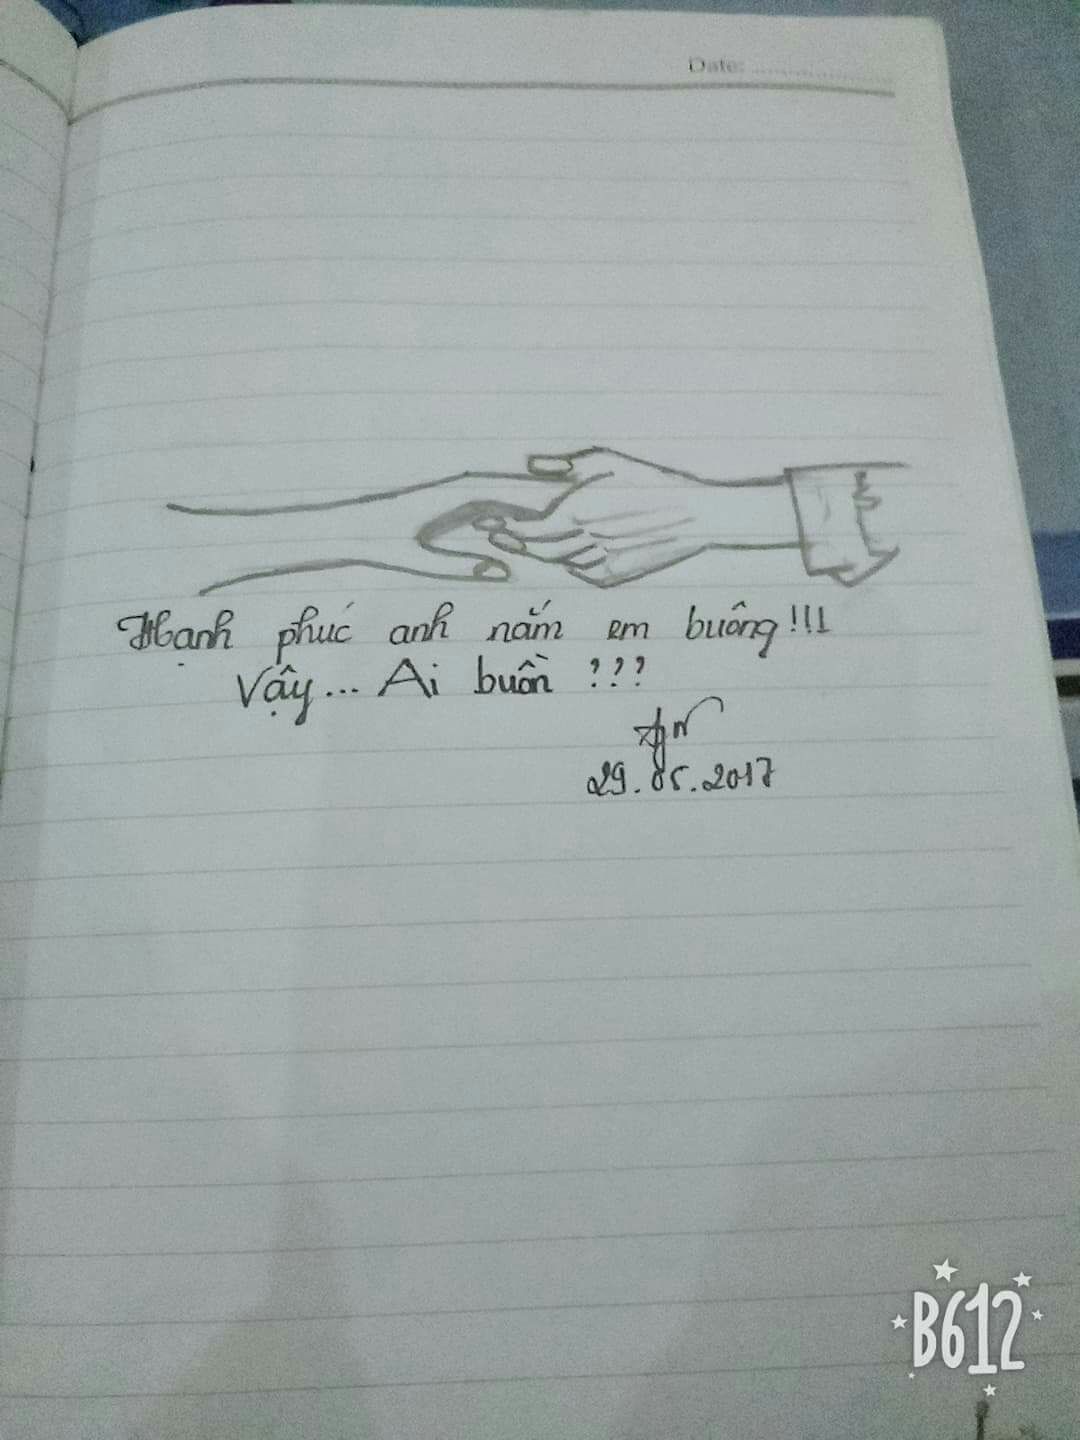 Date:
Hạnh phúc anh nắm em buông!!!
Vậy... Ai buồn ???
29.05.2017
B612